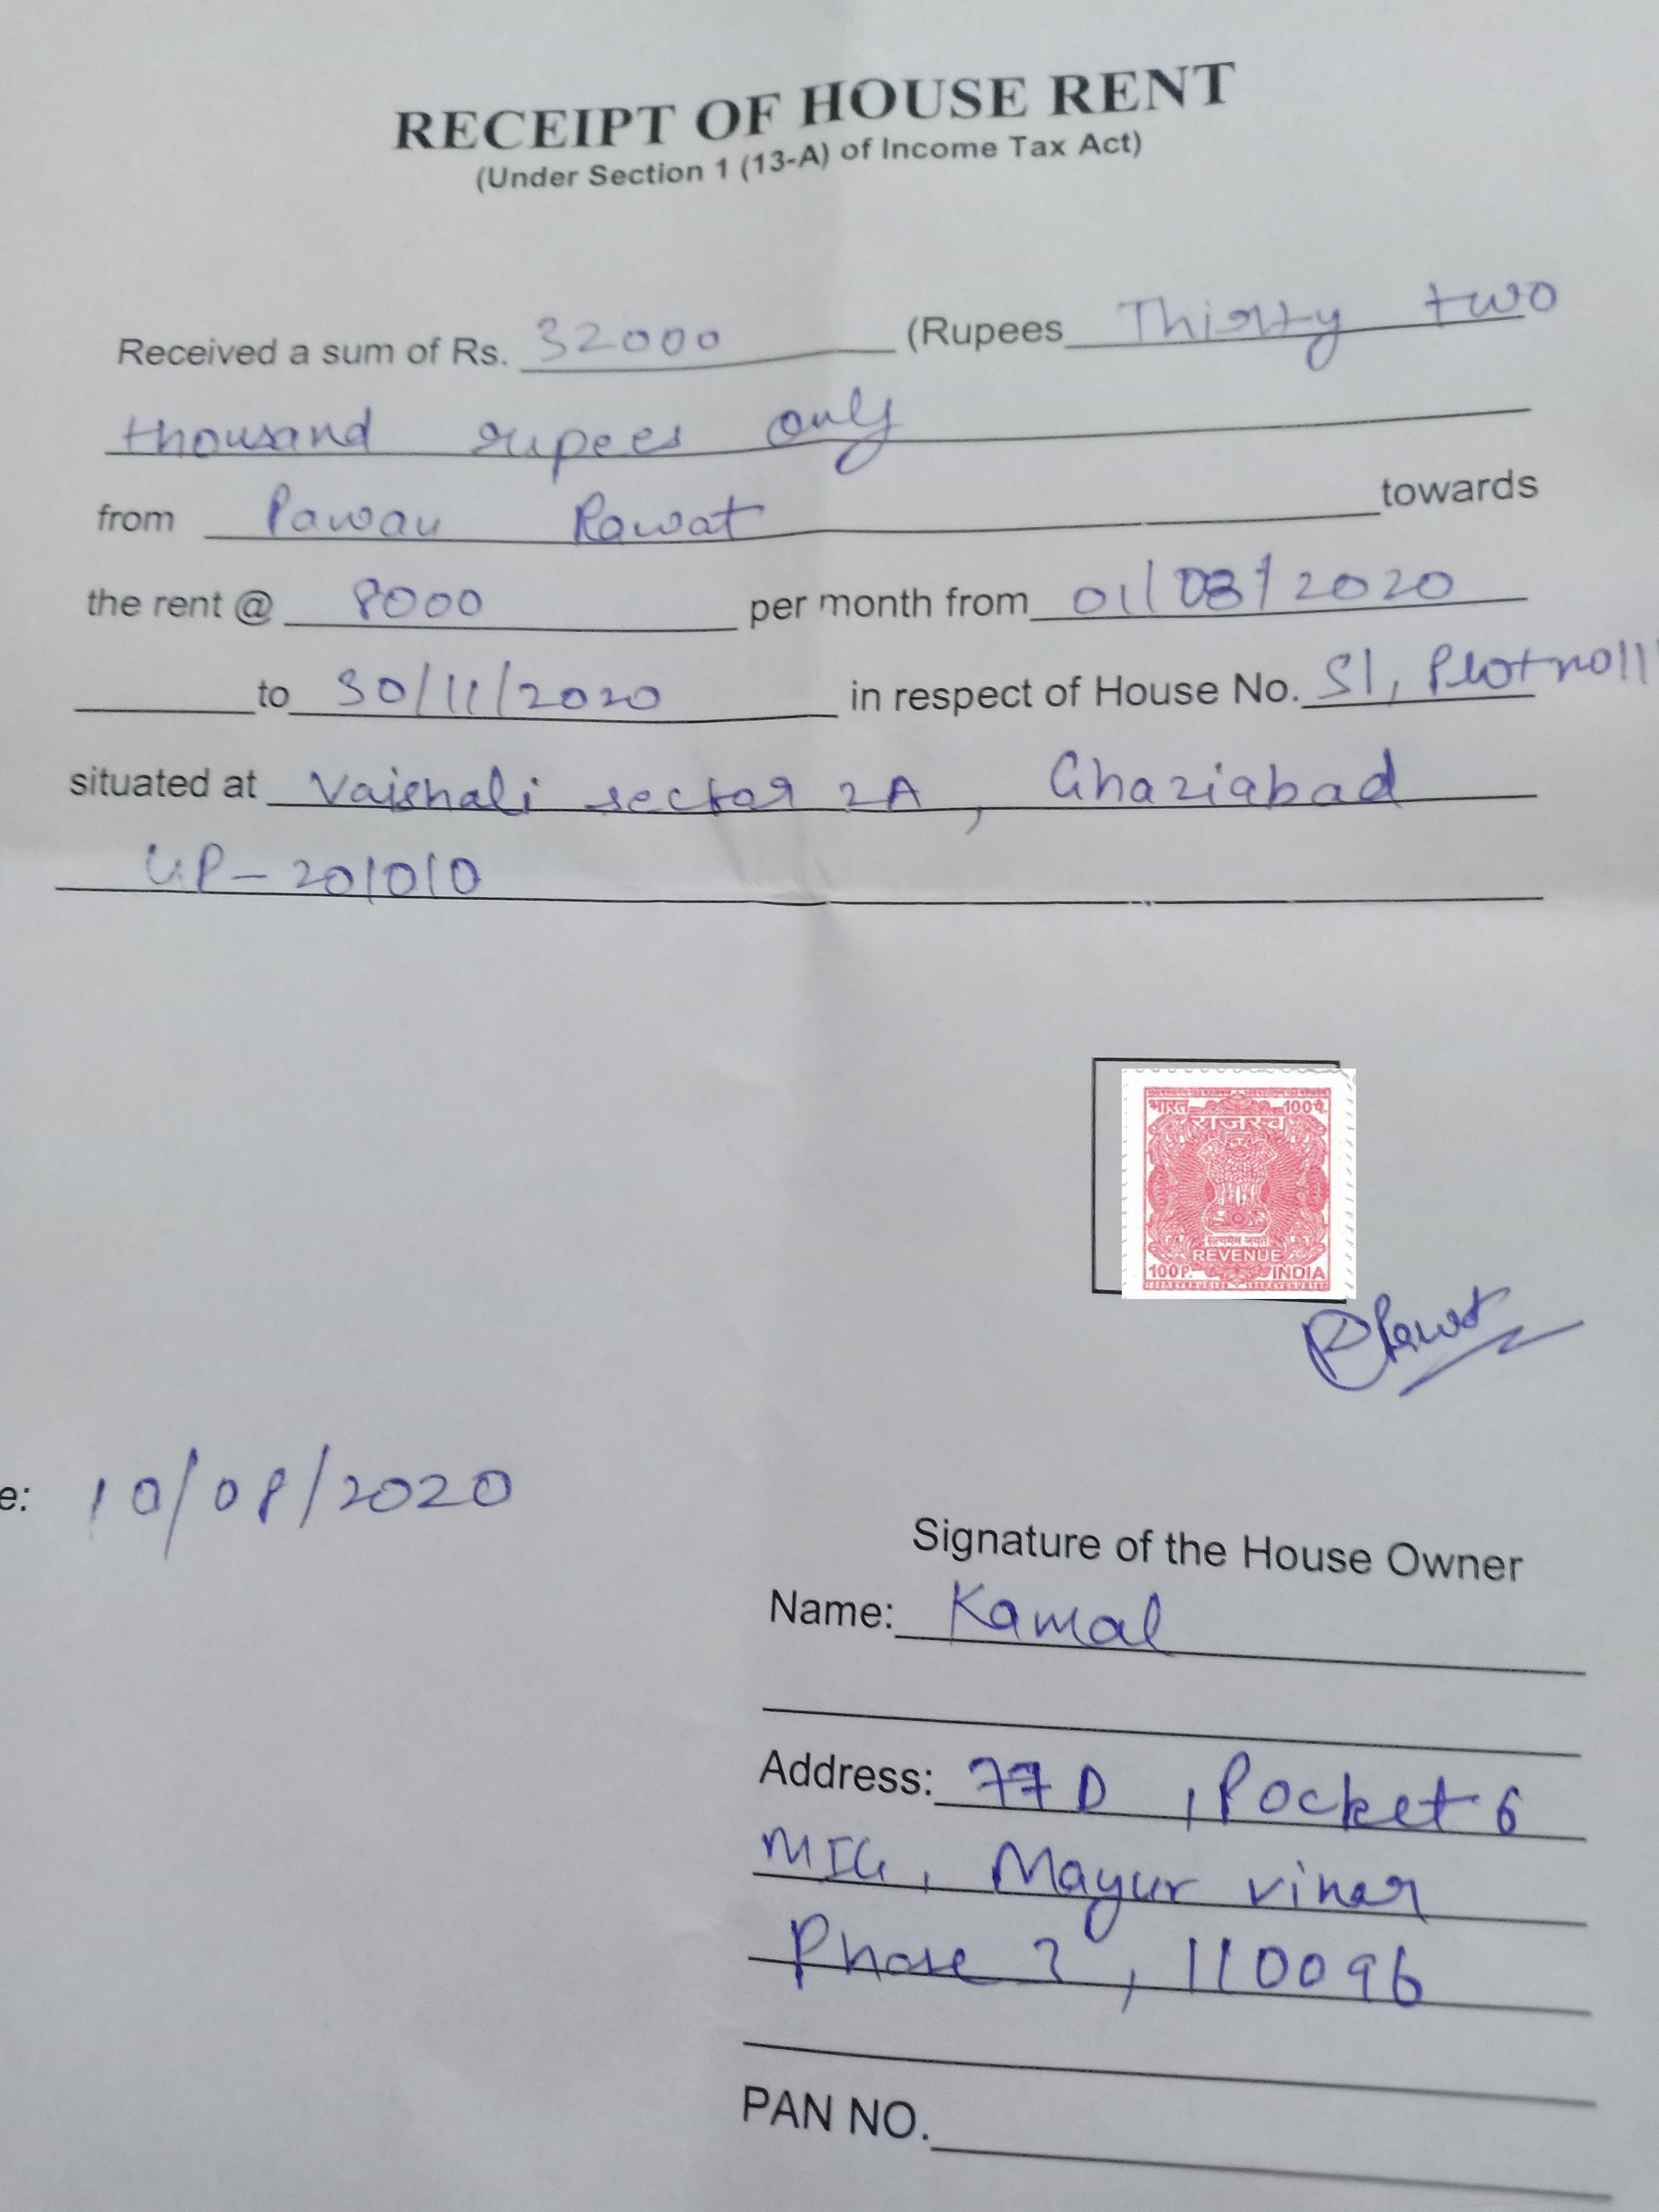 RECEIPT OF HOUSE RENT
(Under Section 1 (13-A) of Income Tax Act)
Received a sum of Rs. 32000 (Rupees Thirty two
thousand rupees only
from Pawan Rawat towards
the rent @ 8000 per month from 01/08/2020
to 30/11/2020 in respect of House No. S1, Plot no 11
situated at Vaishali sector 2A, Ghaziabad
UP-201010
भारत 100पै.
राजस्व
सत्यमेव जयते
REVENUE
100P. INDIA
PRawat
e: 10/08/2020
Signature of the House Owner
Name: Kamal
Address: 77D, Pocket 6
MIG, Mayur vihar
Phase 3, 110096
PAN NO.